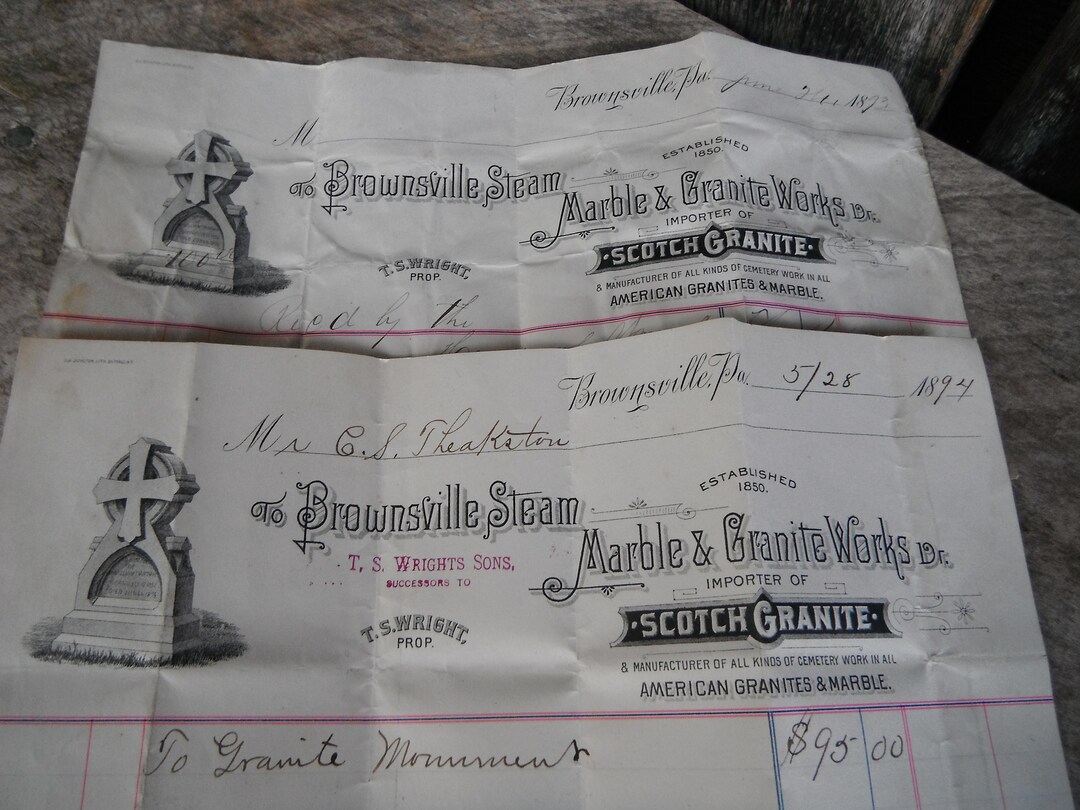 Brownsville, Pa. June 1893
M
ESTABLISHED
1850.
To Brownsville Steam
Marble & Granite Works Dr.
IMPORTER OF
SCOTCH GRANITE
T.S. WRIGHT,
PROP.
& MANUFACTURER OF ALL KINDS OF CEMETERY WORK IN ALL
AMERICAN GRANITES & MARBLE.
Rec'd by the
Brownsville, Pa. 5/28 1894
Mr C.S. Theakston
ESTABLISHED
1850.
To Brownsville Steam
Marble & Granite Works Dr.
T. S. WRIGHTS SONS,
SUCCESSORS TO
IMPORTER OF
SCOTCH GRANITE
T.S. WRIGHT,
PROP.
& MANUFACTURER OF ALL KINDS OF CEMETERY WORK IN ALL
AMERICAN GRANITES & MARBLE.
To Granite Monument $95 00